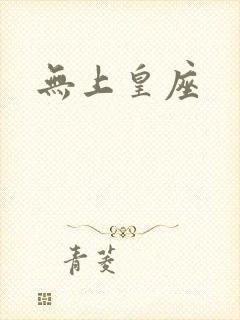 無上皇座
青菱